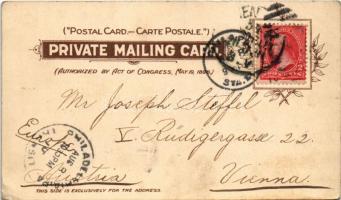 ("POSTAL CARD.—CARTE POSTALE.")
PRIVATE MAILING CARD.
(AUTHORIZED BY ACT OF CONGRESS, MAY 19, 1898.)
Mr Joseph Steffel
V. Rüdigergasse 22.
Austria Vienna.
PHILADELPHIA
THIS SIDE IS EXCLUSIVELY FOR THE ADDRESS.